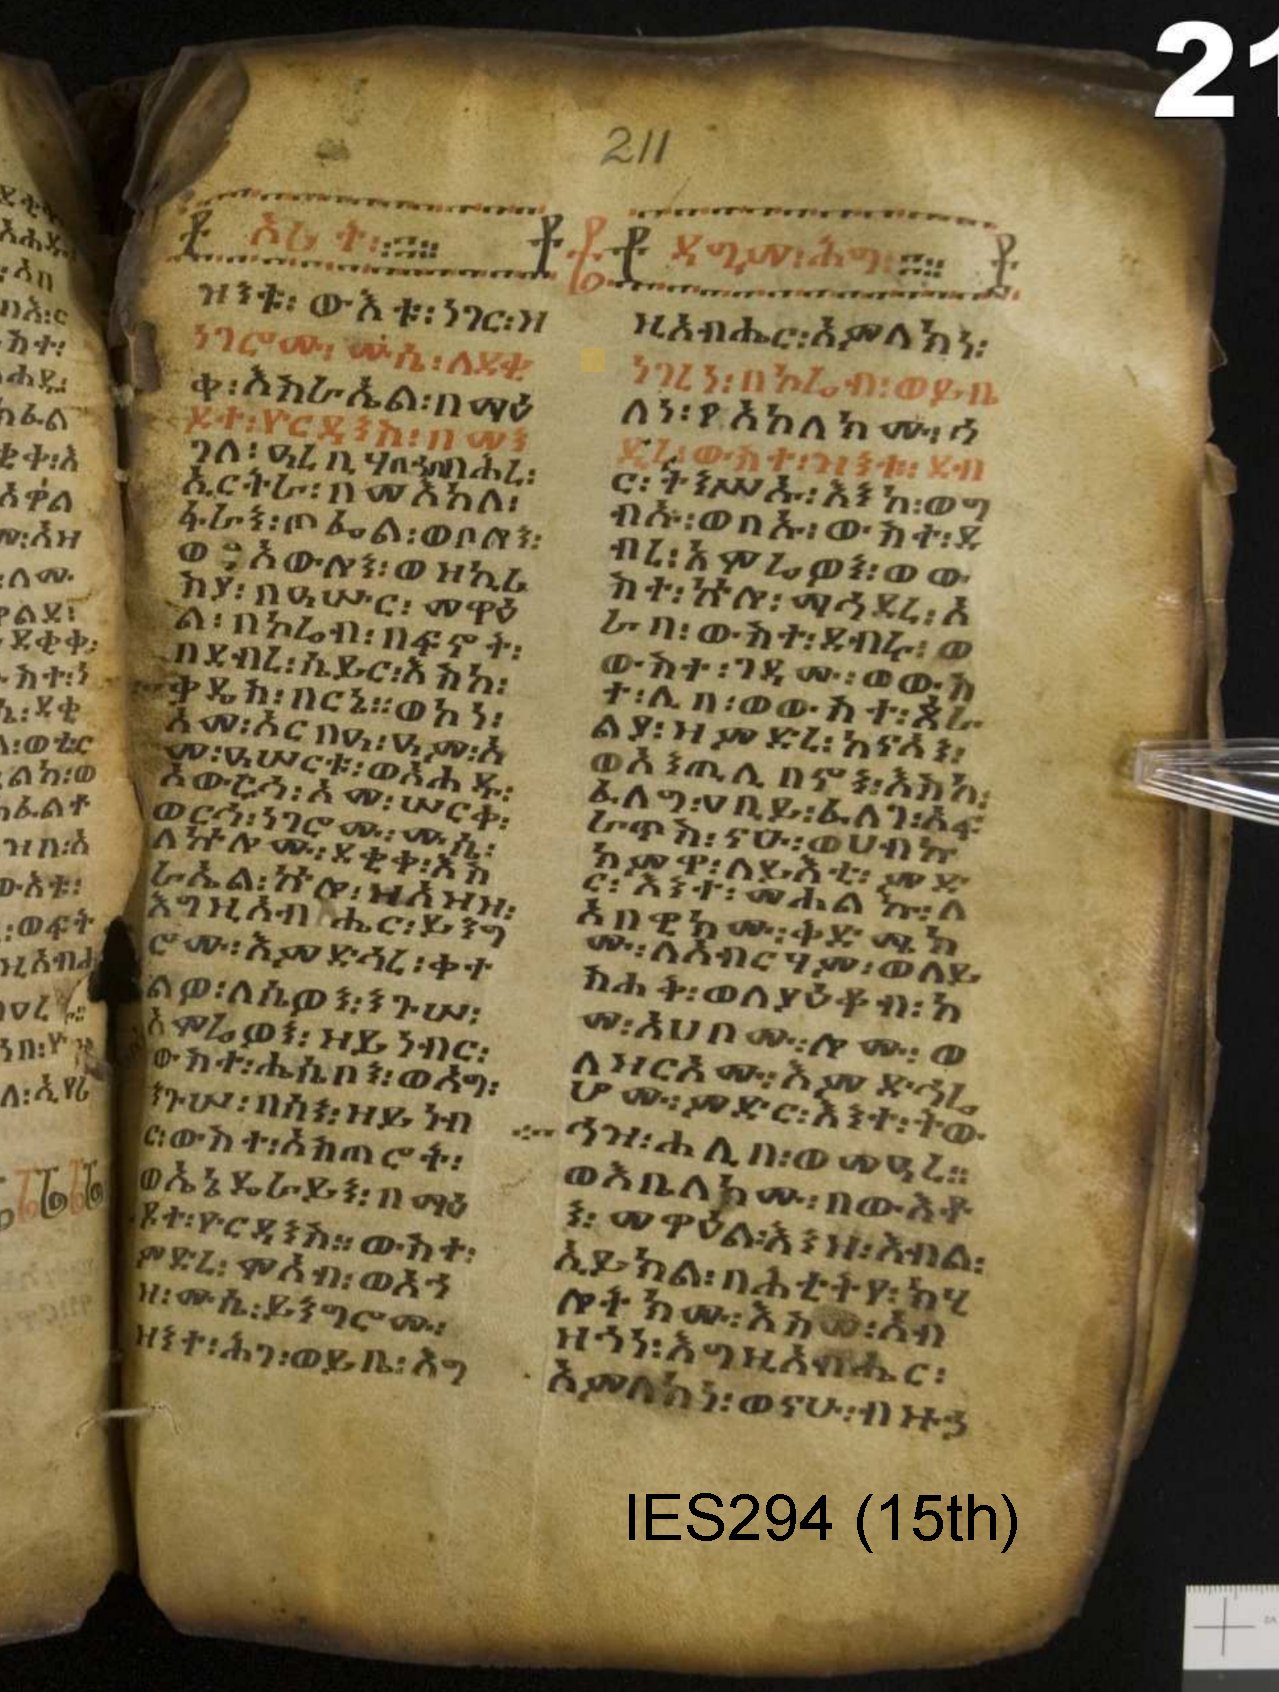 21
211
ኦሪት፡
ዳግም፡ሕግ፡
ዝንቱ፡ ውእቱ፡ነገር፡ዘ
ነገሮሙ፡ ሙሴ፡ለደቂ
ቀ፡እስራኤል፡በማዕ
ዶተ፡ዮርዳንስ፡በመን
ገለ፡ዓረቢሃ፡
ኤርትራ፡በመእከለ፡
ፋራን፡ጦፌል፡ወቦሎን፡
ወ አውሎን፡ወዝኪሬ
ስያ፡በዓሡር፡መዋዕ
ል፡በኮሬብ፡በፍኖት፡
በደብረ፡ሴይር፡እስከ፡
ቃዴስ፡በርኔ።ወኮነ፡
አመ፡አርበዓ፡ዓም፡አ
መ፡ዓሠርቱ፡ወአሐዱ፡
አውራኅ፡አመ፡ሠርቀ፡
ወርኅ፡ነገሮሙ፡ሙሴ፡
ለኵሎሙ፡ደቂቀ፡እስ
ራኤል፡ኵሎ፡ዘአዘዘ፡
እግዚአብሔር፡ይንግ
ሮሙ፡እምድኅረ፡ቀተ
ልዎ፡ለሴዎን፡ንጉሠ፡
አሞሬዎን፡ዝይነብር፡
ውስተ፡ሐሴቦን፡ወአግ፡
ንጉሠ፡በሰን፡ዝይነብ
ር፡ውስተ፡አስጠሮት፡
ወኤኔዴራይን፡በማዕ
ዶተ፡ዮርዳንስ።ውስተ፡
ምድረ፡ሞአብ፡ወአኀ
ዘ፡ሙሴ፡ይንግሮሙ፡
ዘንተ፡ሕገ፡ወይቤ፡እግ
ዚአብሔር፡አምላክነ፡
ነገረነ፡በኮሬብ፡ወይቤ
ለነ፡የአክለክሙ፡ኅ
ዲረ፡ውስተ፡ዝንቱ፡ደብ
ር፡ትንሥኡ፡እንከ፡ወግ
ብኡ፡ወበኡ፡ውስተ፡ደ
ብረ፡አሞሬዎን፡ወው
ስተ፡ኵሉ፡ማኅደረ፡አ
ራባ፡ውስተ፡ደብር፡ወ
ውስተ፡ገዳሙ፡ወውስ
ተ፡ሊባ፡ወውስተ፡ጰራ
ልያ፡ዝምድረ፡ከናአን፡
ወአንጢሊባኖን፡እስከ፡
ፈለግ፡ዐቢይ፡ፈለገ፡ኤፍ
ራጥስ፡ናሁ፡ወሀብኩ
ክምዋ፡ለይእቲ፡ምድ
ር፡እንተ፡መሐልኩ፡ለ
አበዊክሙ፡ቀድሜክ
ሙ፡ለአብርሃም፡ወለይ
ስሐቅ፡ወለያዕቆብ፡ከ
መ፡አሀቦሙ፡ሎሙ፡ወ
ለዝርኦሙ፡እምድኅሬ
ሆሙ፡ምድር፡እንተ፡ትው
ኅዝ፡ሐሊበ፡ወመዓረ።
ወእቤለክሙ፡በውእቶ
ን፡መዋዕል፡እንዘ፡እብል፡
ኢይክል፡በሕቲትየ፡ከሂ
ሎትክሙ፡እስመ፡አብ
ዝኀነ፡እግዚአብሔር፡
አምላክነ፡ወናሁ፡ብዙኃ
IES294 (15th)